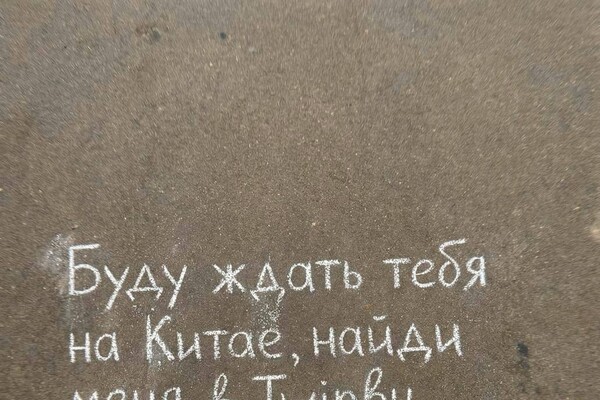 Буду ждать тебя
на Китае, найди
меня в